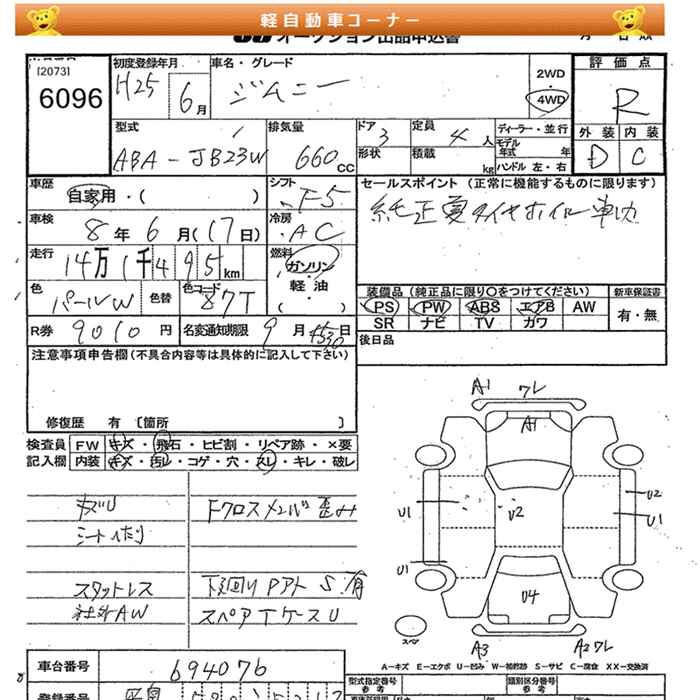 軽自動車コーナー
オークション出品申込書
[2073]
6096
初度登録年月 H25 6月
車名・グレード ジムニー
2WD
・
4WD
評価点 R
型式 ABA-JB23W
排気量 660cc
ドア 3
定員 4人
ディーラー・並行
形状
積載 kg
モデル年式 年
ハンドル 左・右
外装 内装
D C
車歴 自家用・( )
シフト F5
セールスポイント (正常に機能するものに限ります)
車検 8年6月(17日)
冷房 AC
走行 14万1千495km
燃料 ガソリン・軽・油・( )
色 パールW
色替
色コード 87T
装備品 (純正品に限り○をつけてください)
新車保証書
PS PW ABS エアB AW
SR ナビ TV カワ
有・無
R券 9010円
名変通知期限 9月
日
後日品
注意事項申告欄(不具合内容等は具体的に記入して下さい)
修復歴 有 [箇所 ]
検査員 FW キズ・飛石・ヒビ割・リペア跡・×要
記入欄 内装 キズ・汚レ・コゲ・穴・スレ・キレ・破レ
Fクロスメンバ歪み
シートへたり
スタットレス
社外AW
下回りPアトS有
スペアTケースU
A1 ワレ
A1
U1
U2
U2
U1
U1
U4
スペア
A3
A2 ワレ
A-キズ E-エクボ U-凹み W-補修跡 S-サビ C-腐食 XX-交換済
車台番号 694076
型式指定番号
参考
類別区分番号
参考
登録番号